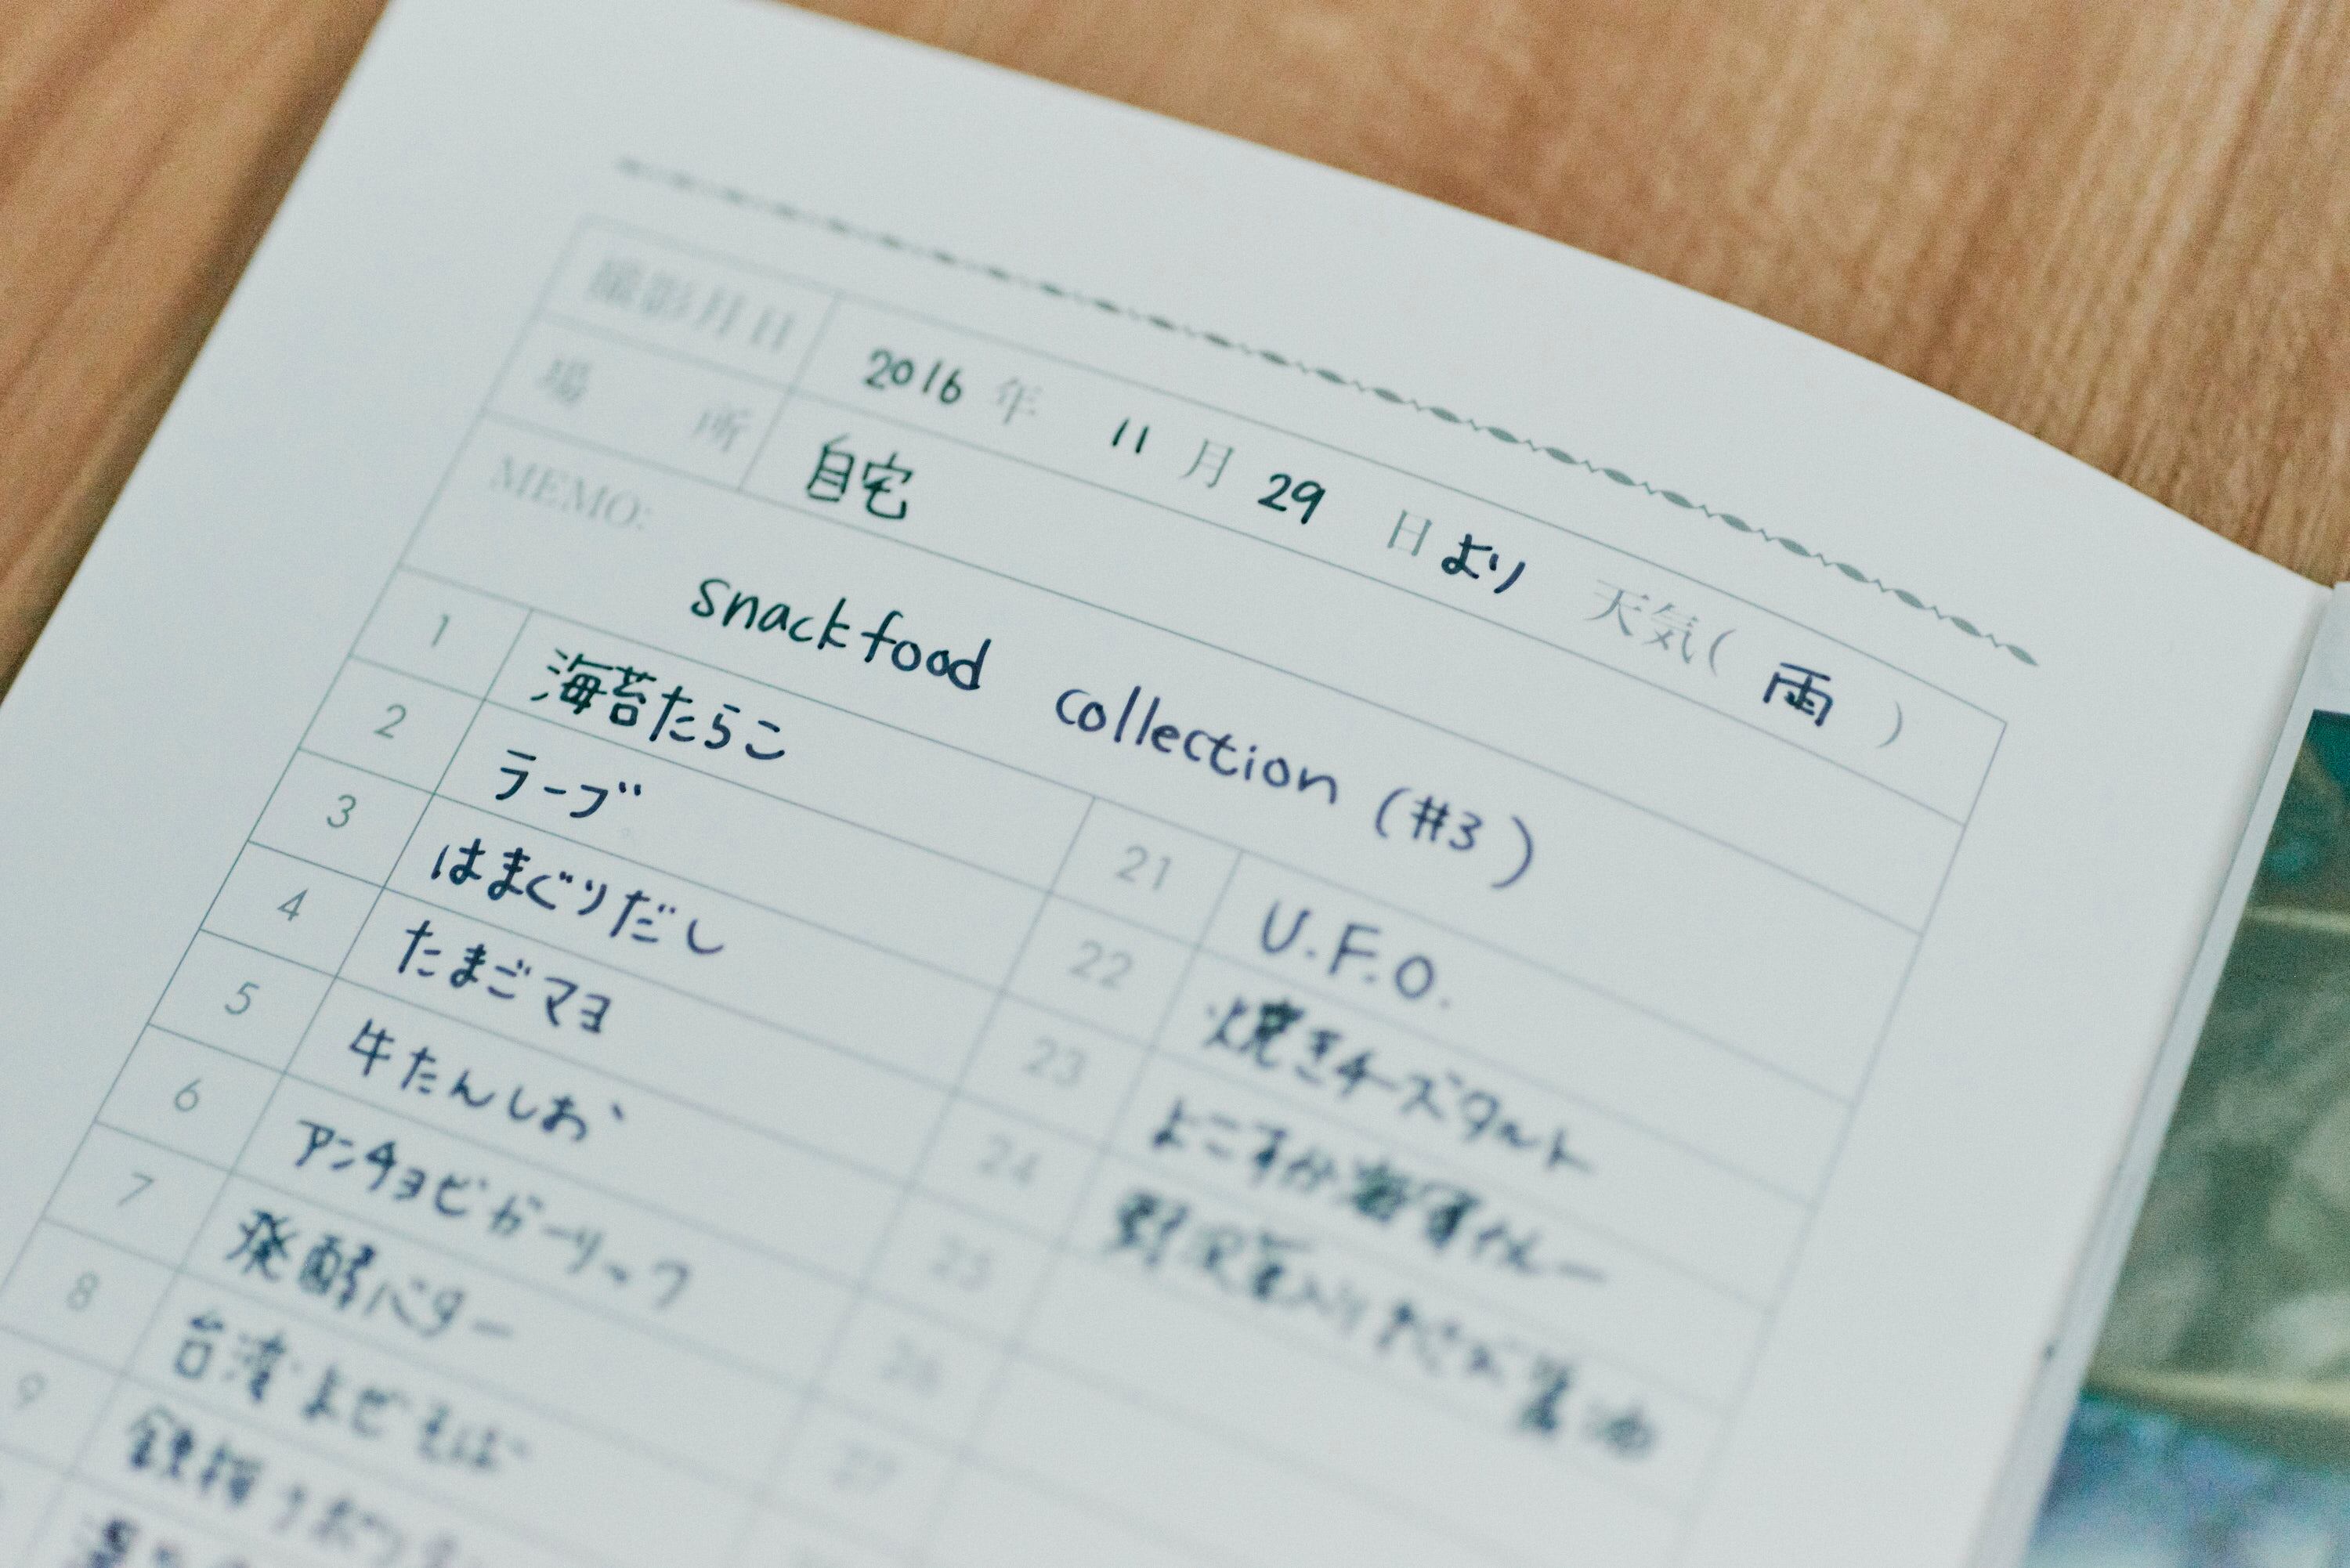 撮影月日 2016 年 11 月 29 日より 天気( 雨 )
場 所 自宅
MEMO:
snackfood collection (#3)
1 海苔たらこ
2 ラーブ
3 はまぐりだし
4 たまごマヨ
5 牛たんしお
6 アンチョビガーリック
7 発酵バター
8 台湾まぜそば
9
21 U.F.O.
22 焼きチーズタルト
23 よこすか海軍カレー
24 野沢菜入りわさび醤油
25
26
27